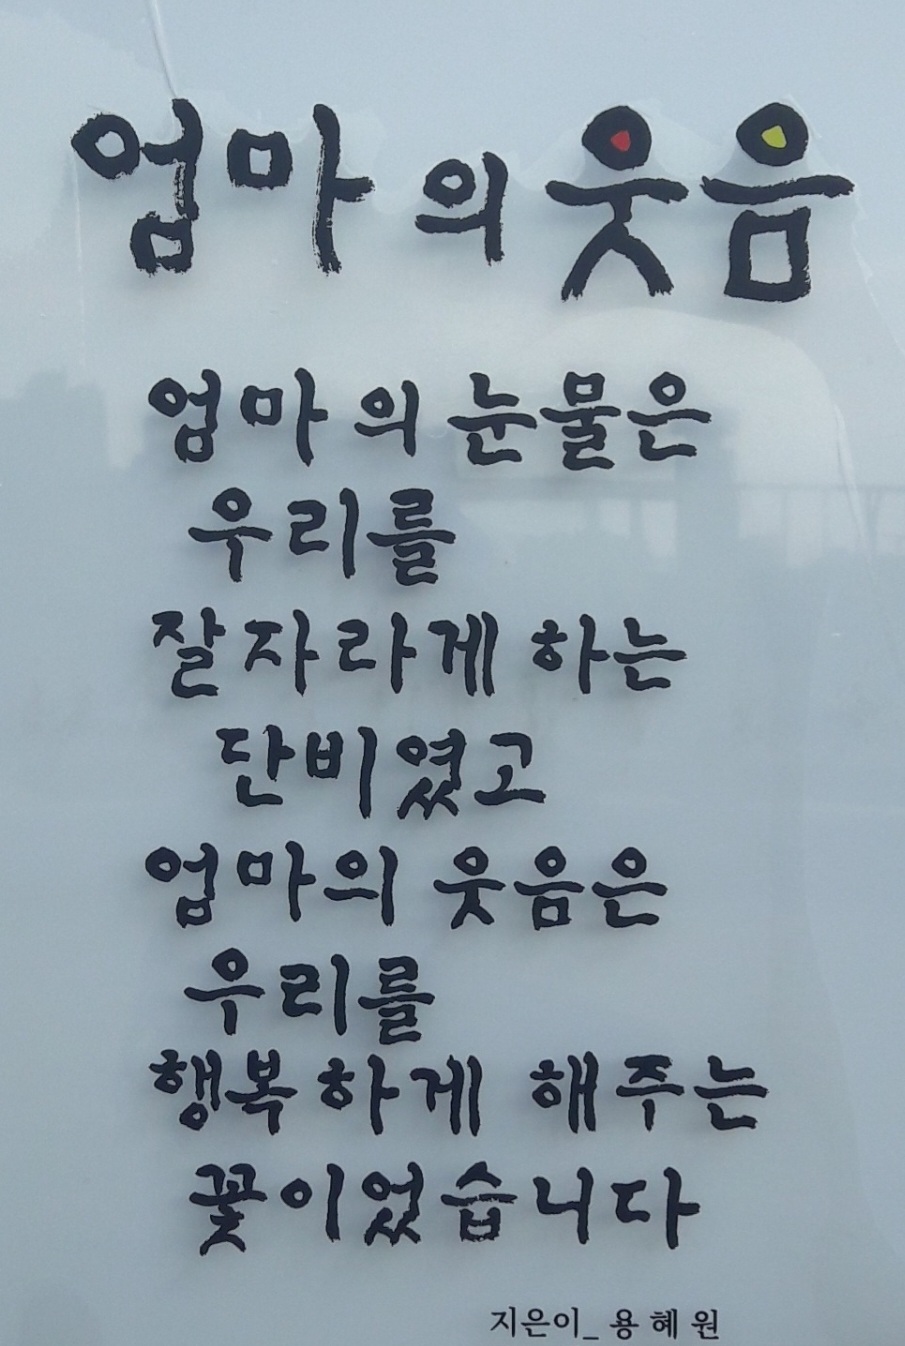 엄마의 웃음
엄마의 눈물은
우리를
잘 자라게 하는
단비였고
엄마의 웃음은
우리를
행복하게 해주는
꽃이었습니다
지은이_ 용혜원